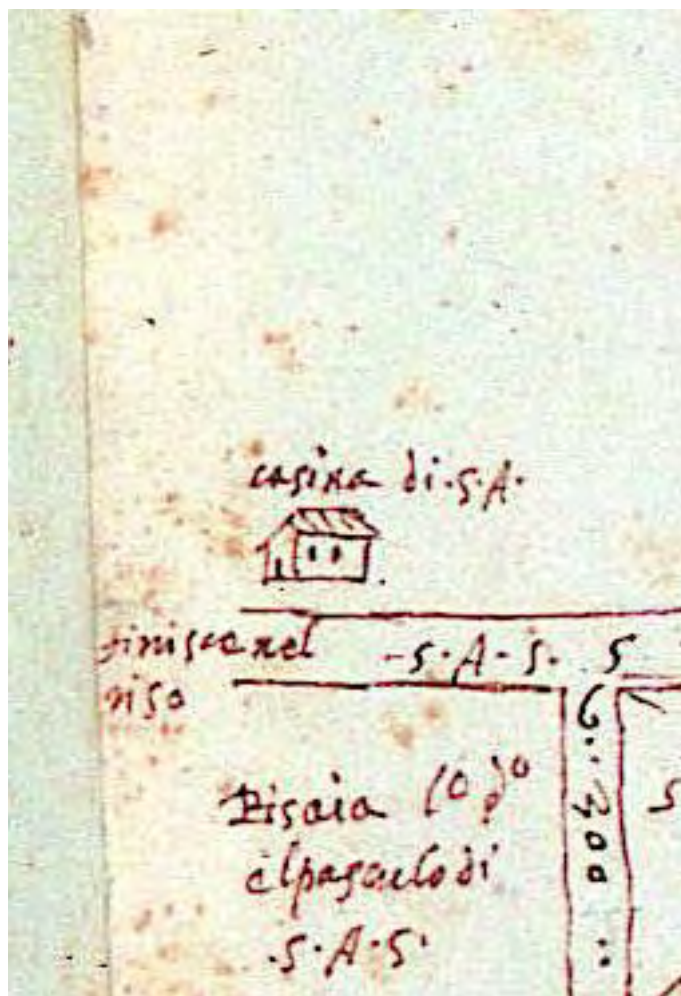 casina di·S·A·
finisce nel
riso
-S·A·S· S
6··300··
Risaia
el pascielo di
·S·A·S·
S